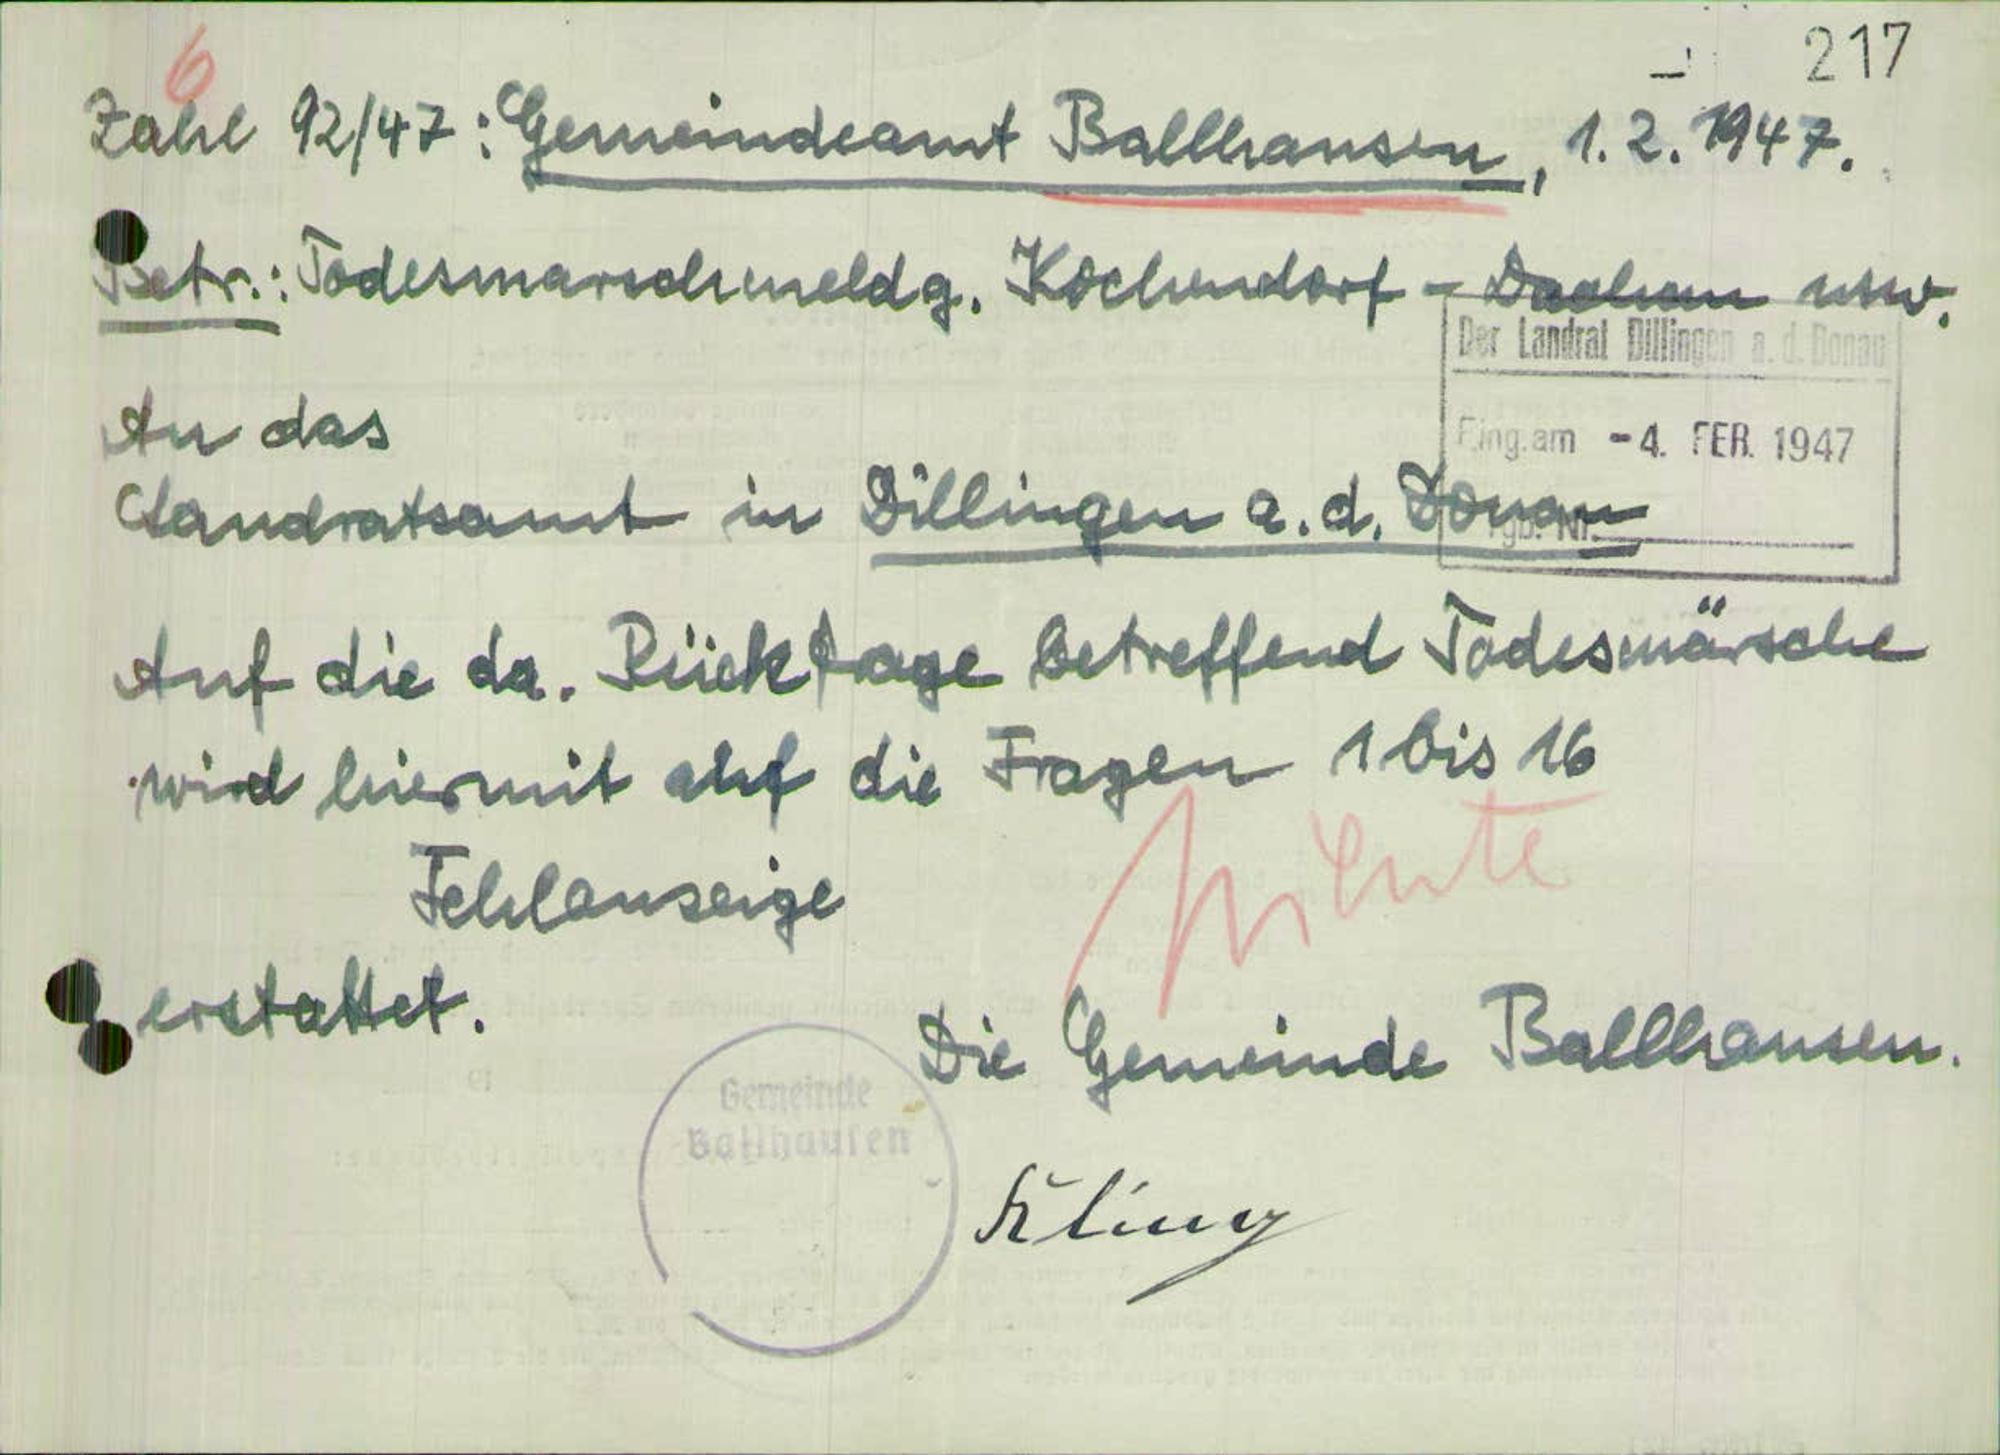 217
6
Zahl 92/47: Gemeindeamt Ballhausen, 1.2.1947.
Betr.: Todesmarschmeldg. Kochendorf - Dachau usw.
Der Landrat Dillingen a. d. Donau
An das
Eing. am -4. FEB. 1947
Landratsamt in Dillingen a. d. Donau
Tgb. Nr.
Auf die da. Rückfrage betreffend Todesmärsche
wird hiermit auf die Fragen 1 bis 16
Fehlanzeige
erstattet.
Die Gemeinde Ballhausen.
Gemeinde
Ballhausen
Kling